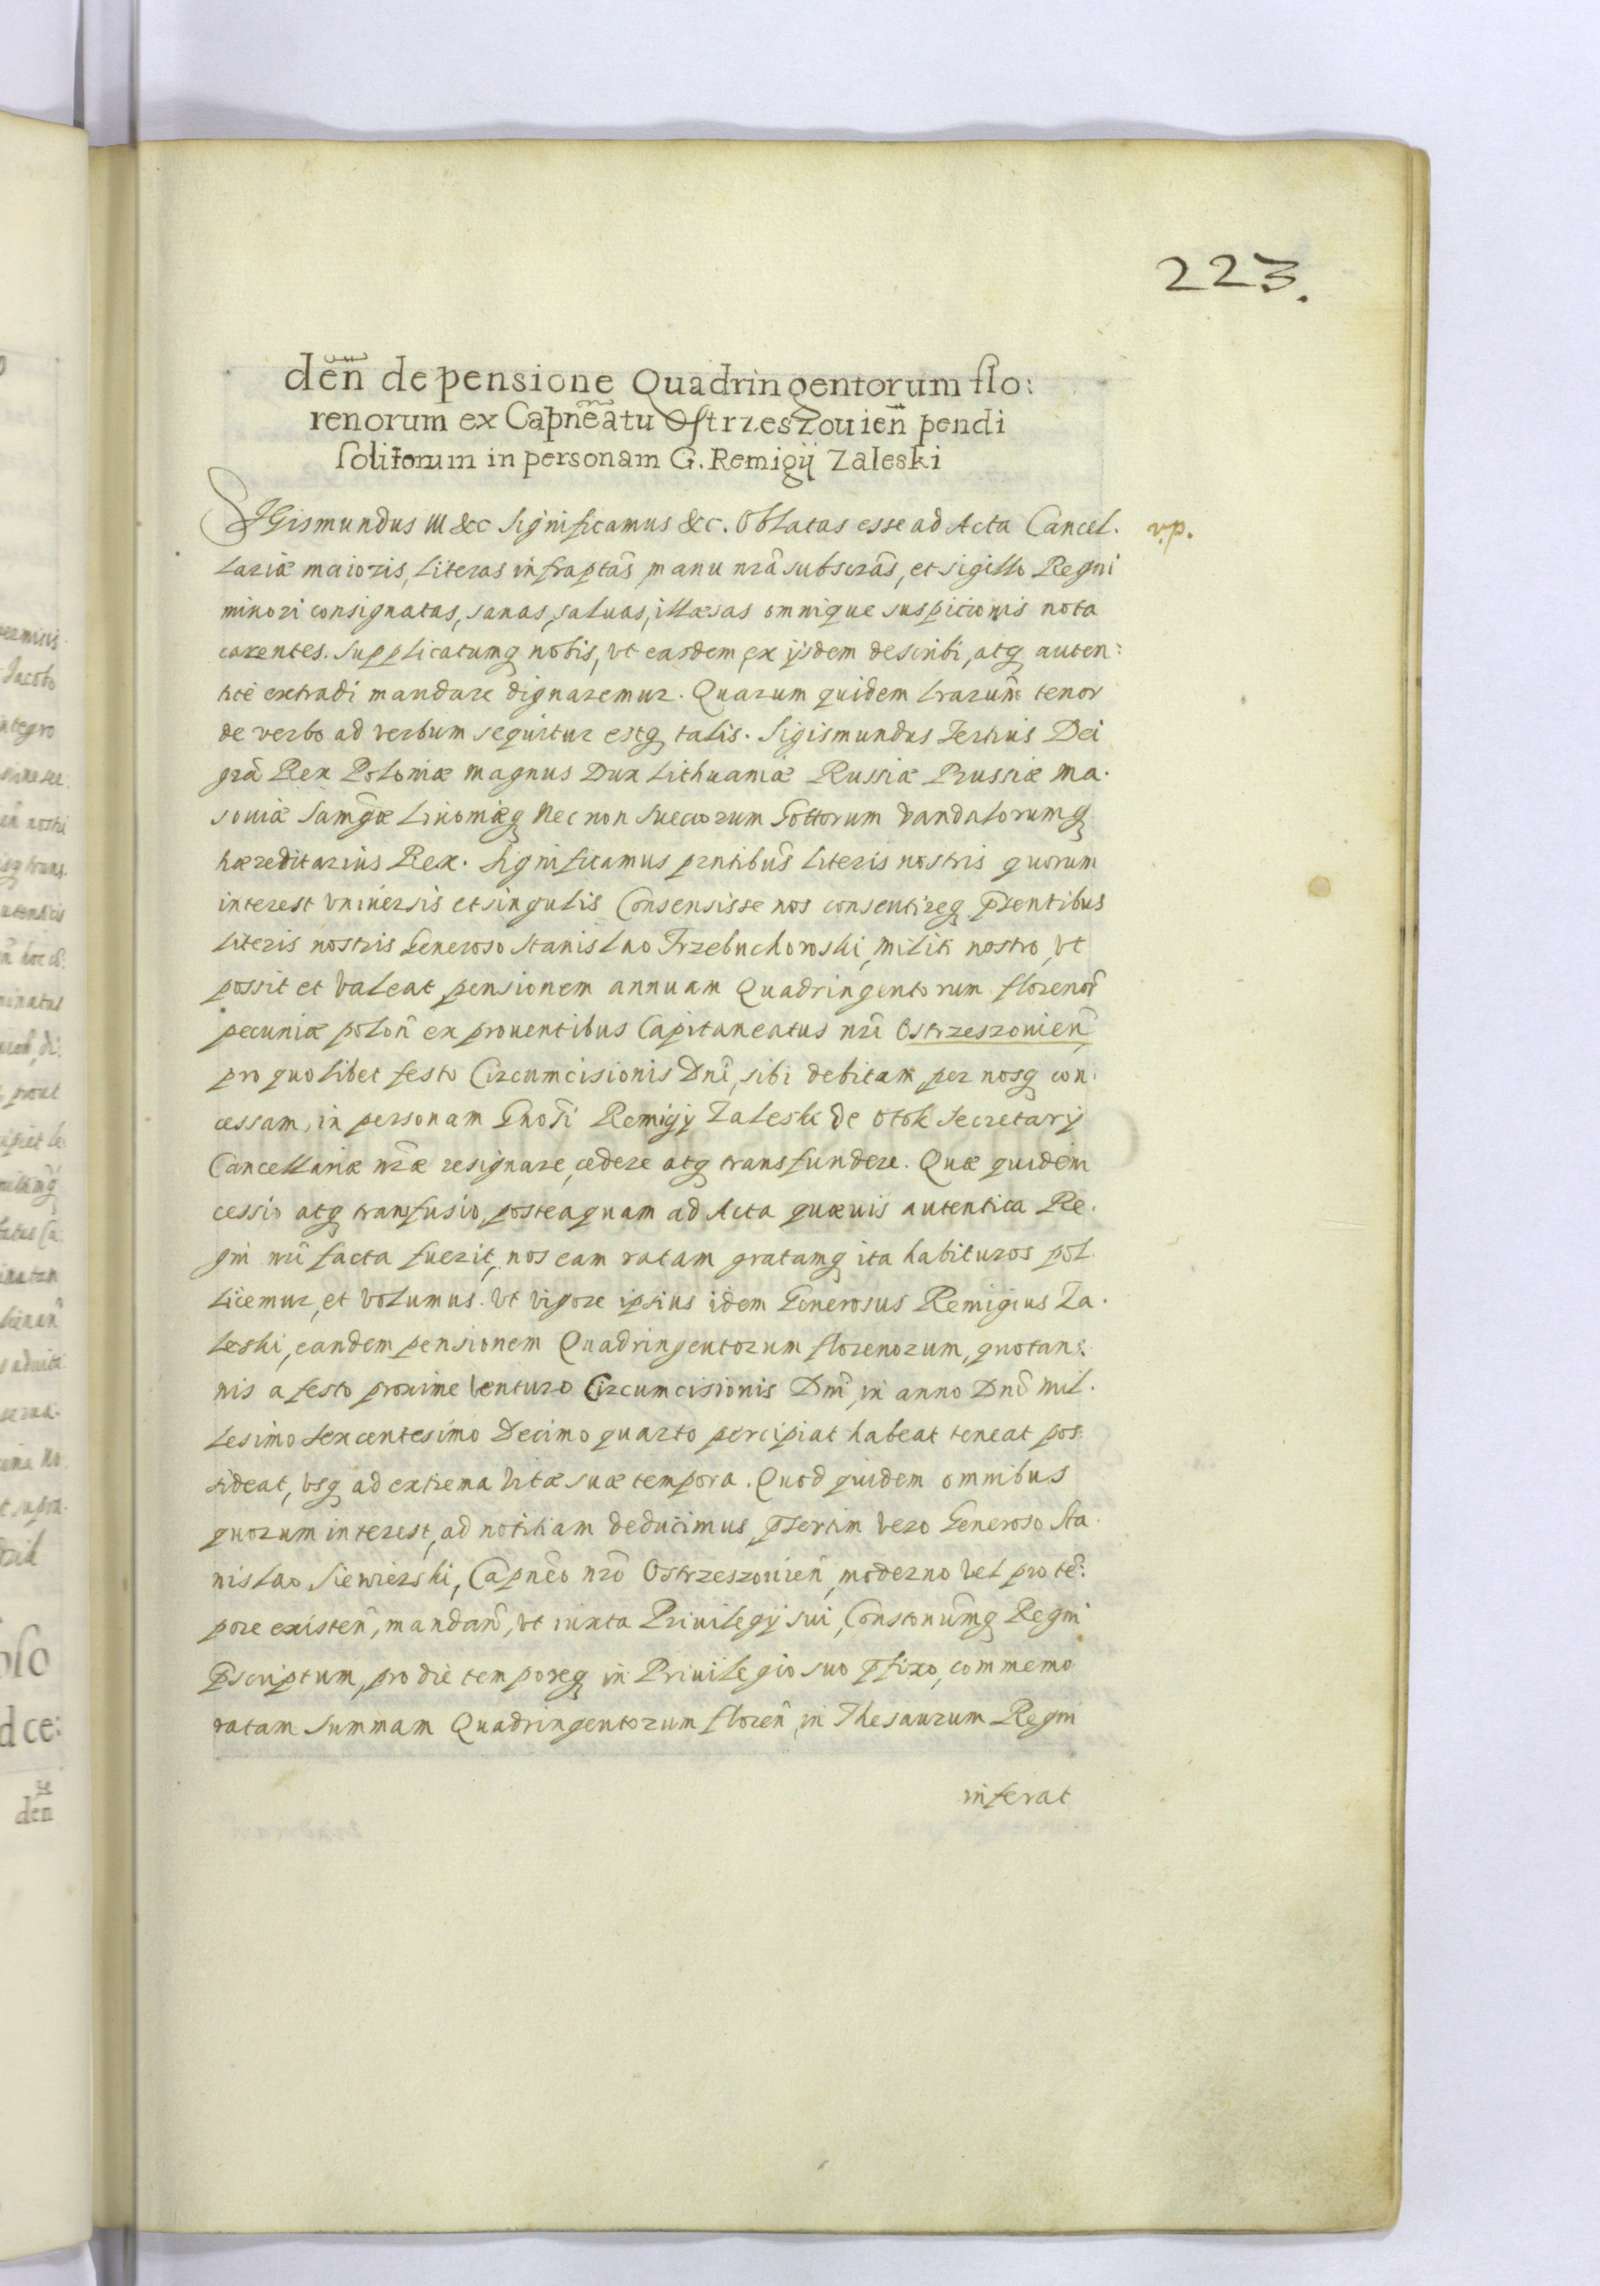 223.
deñ de pensione Quadringentorum flo:
renorum ex Capneatu Ostrzeszouień pendi
solitorum in personam G. Remigij Zaleski
SIGismundus III &c Significamus &c. Oblatas esse ad Acta Cancel.
lariæ maioris, literas infraptas manu nrã subscrãs, et sigillo Regni
minori consignatas, sanas, saluas, illæsas omnique suspicionis nota
carentes. Supplicatumq nobis, vt easdem ex ijsdem describi, atq auten:
tice extradi mandare dignaremur. Quarum quidem lrarum tenor
de verbo ad verbum sequitur estq talis. Sigismundus Tertius Dei
grã Rex Poloniæ magnus Dux Lithuaniæ Russiæ Prussiæ Ma.
souiæ Samgæ Liuoniæq nec non Suecorum Gottorum Vandalorumq
hæreditarius Rex. Significamus pntibus literis nostris quorum
interest vniuersis et singulis Consensisse nos consentireq prentibus
literis nostris Generoso Stanislao Trzebuchowski, militi nostro, vt
possit et valeat pensionem annuam Quadringentorum florenor̃
pecuniæ polon̄ ex prouentibus Capitaneatus nrĩ Ostrzeszouień
pro quolibet festo Circumcisionis Dnĩ, sibi debitam, per nosq con.
cessam, in personam Gnosi Remigij Zaleski de Otok Secretarij
Cancellariæ nræ resignare, cedere atq transfundere. Quæ quidem
cessio atq transfusio, posteaquam ad Acta quæuis autentica Re.
gni nrĩ facta fuerit, nos eam ratam gratamq ita habituros pol
licemur, et volumus. Vt vigore ipsius idem Generosus Remigius Za.
leski, eandem pensionem Quadringentorum florenorum, quotan:
nis a festo proxime venturo Circumcisionis Dnĩ, in anno Dnĩ mil.
lesimo sexcentesimo Decimo quarto percipiat habeat teneat pos
sideat, vsq ad extrema vitæ suæ tempora. Quod quidem omnibus
quorum interest, ad notitiam deducimus, p̃sertim vero Generoso Sta.
nislao Siewierski, Capneo nrõ Ostrzeszouień, moderno vel pro tẽ:
pore existeñ, mandañ, vt iuxta Priuilegij sui, Constonumq Regni
p̃scriptum, pro die temporeq in Priuilegio suo p̃fixo, commemo
ratam summam Quadringentorum floreñ, in Thesaurum Regni
inferat
v.p.